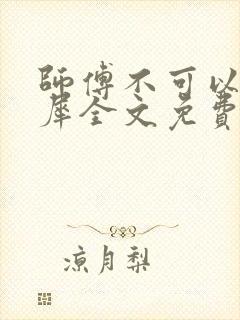 師傅不可以
犀全文免費
涼月梨